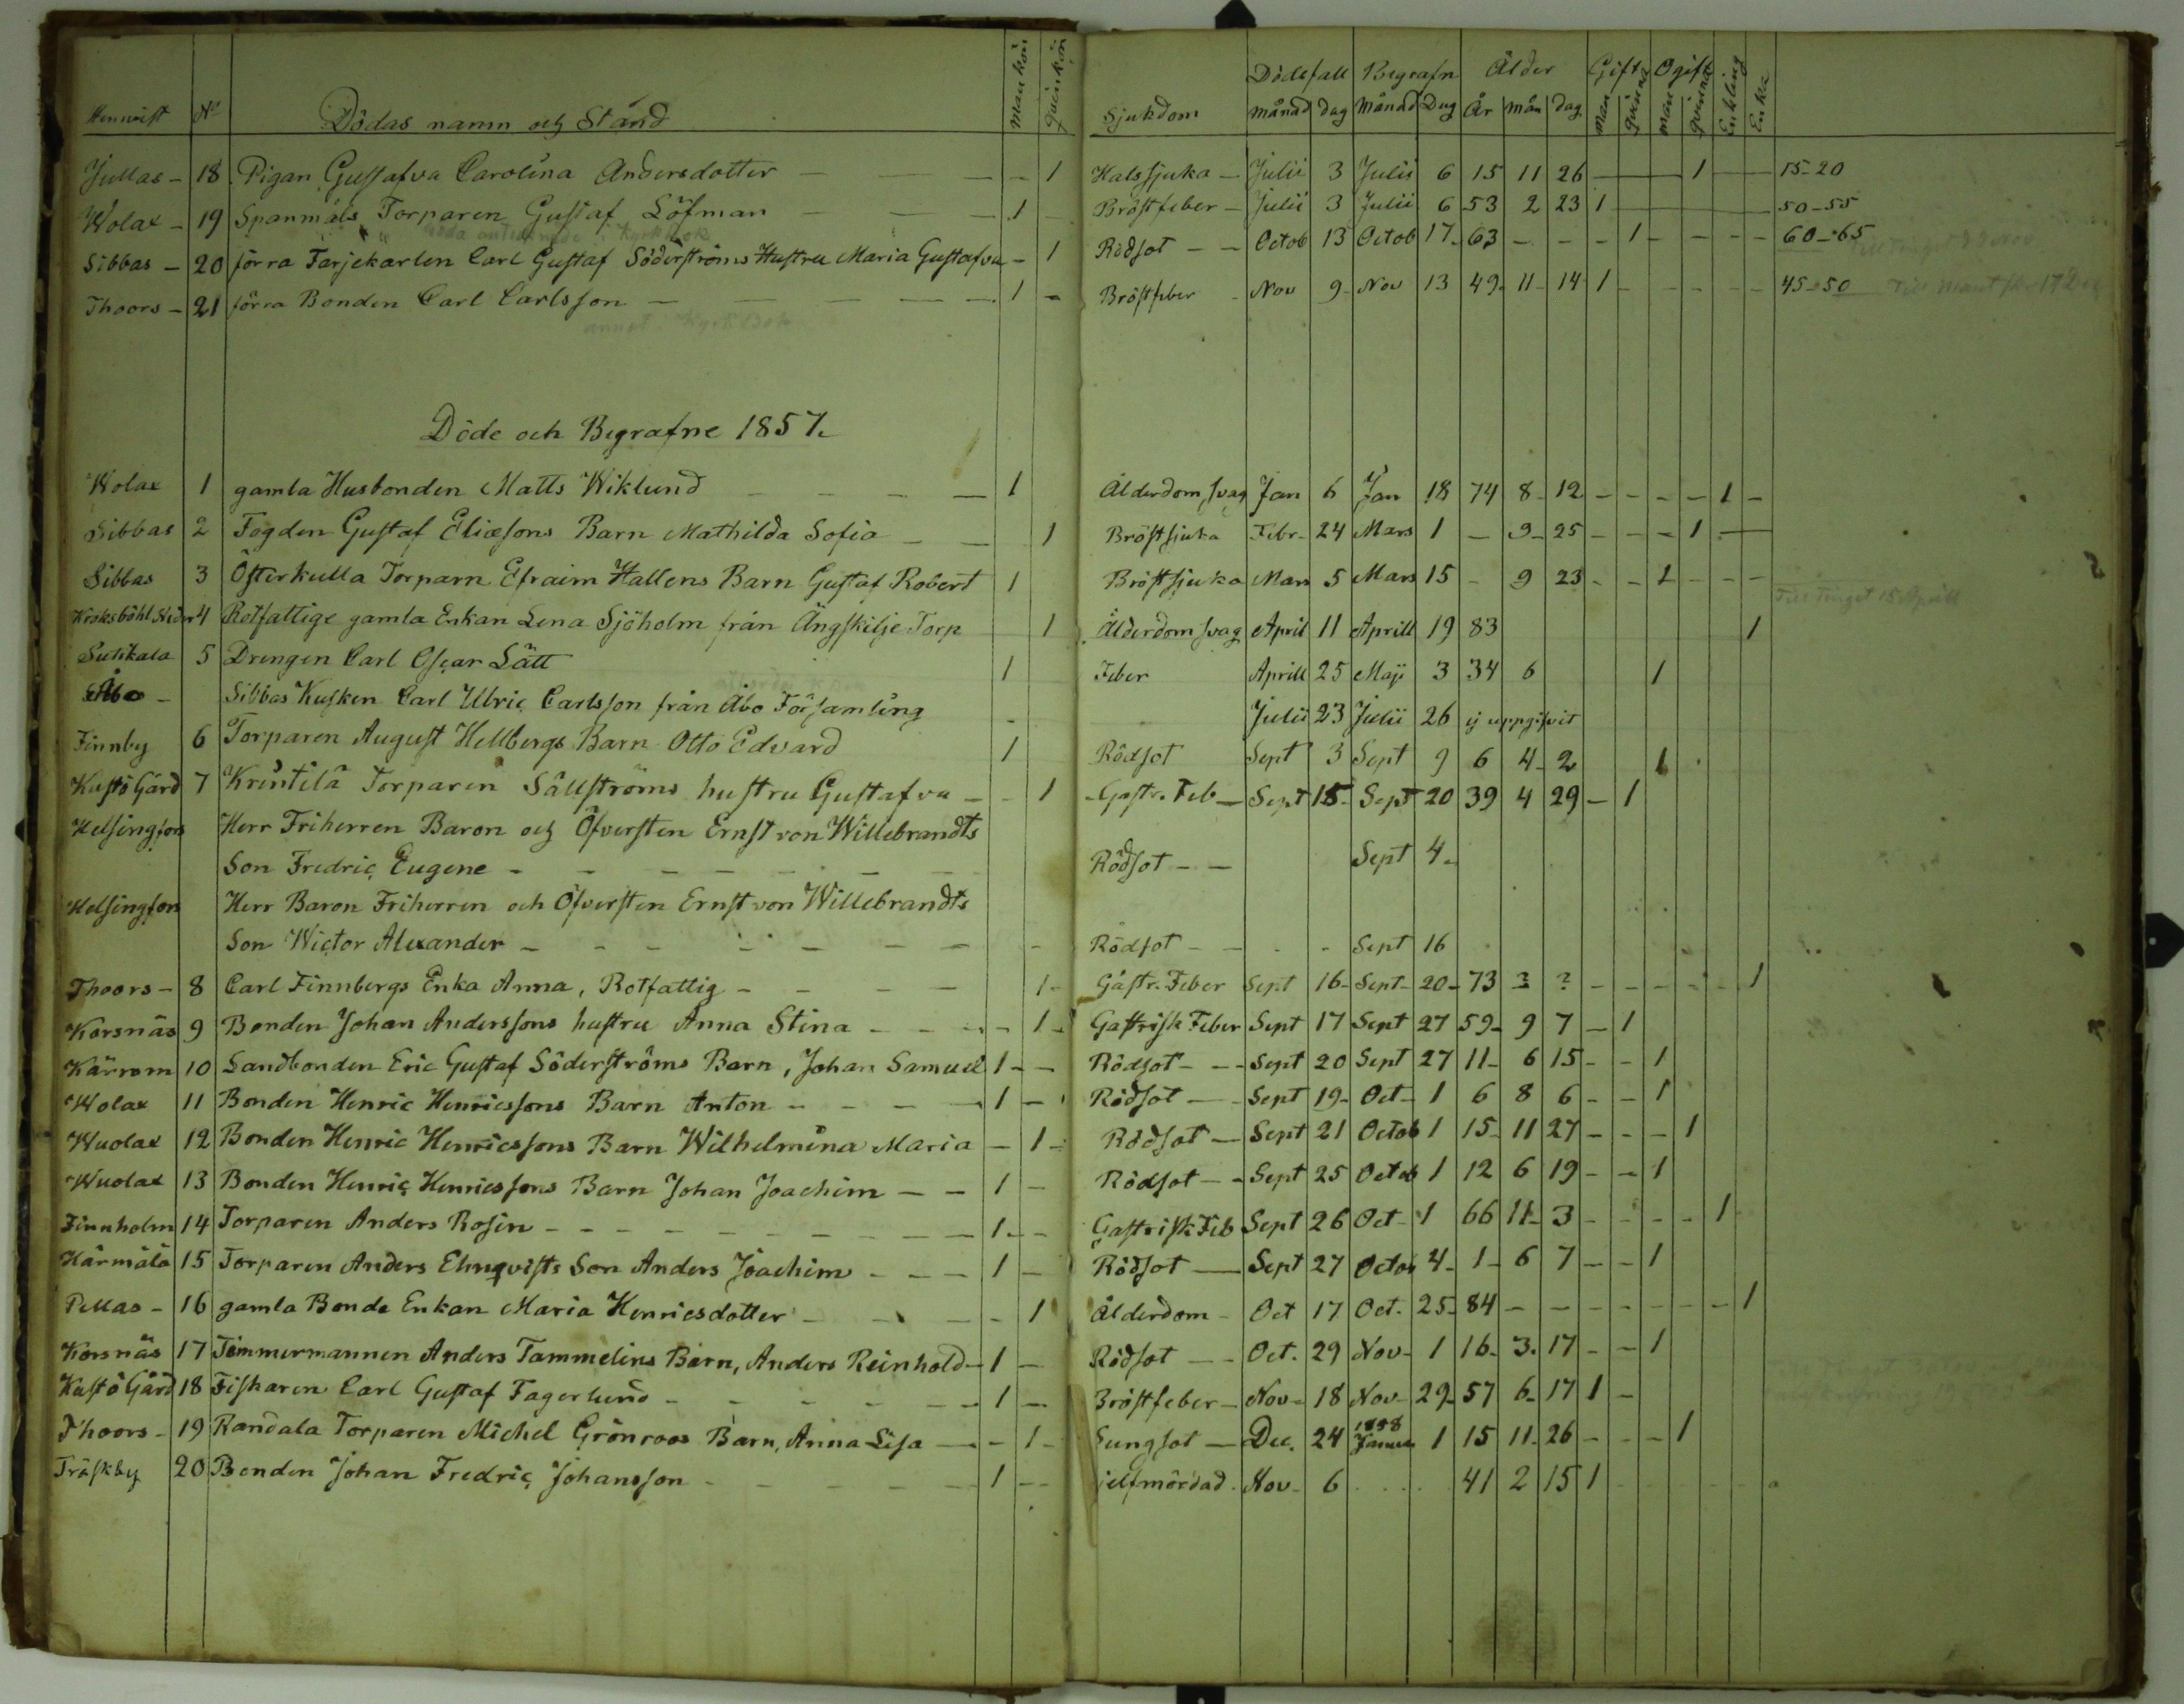 Hemvist No Dödas namn och Stånd Mankön Qvinkön Sjukdom Dödsfall Begrafn Ålder Gift Ogift Enkling Enka
månad dag Månad Dag År mån dag Man qvinna Man qvinna
Jullas - 18 Pigan Gustafva Carolina Andersdotter - 1 Halssjuka - Julii 3 Julii 6 15 11 26 1 15-20
Wolax - 19 Spanmäls Torparen Gustaf Löfman 1 Bröstfeber - Julii 3 Julii 6 53 2 23 1 50-55
Sibbas - 20 förra Farjekarlen Carl Gustaf Söderströms Hustru Maria Gustafva - 1 Rödsot - - Octob 13 Octob 17 63 - - - 1 60-65
Thoors - 21 förra Bonden Carl Carlsson 1 - Bröstfeber - Nov 9 Nov 13 49 11 14 1 45-50
annot. Kyrk Bok
Döde och Begrafne 1857.
Wolax 1 gamla Husbonden Matts Wiklund 1 Ålderdomsvag Jan 6 Jan 18 74 8 12 - - - - 1 -
Sibbas 2 Fogden Gustaf Eliæsons Barn Mathilda Sofia 1 Bröstsjuka Febr 24 Mars 1 - 9 25 - - - 1
Sibbas 3 Österkulla Torparn Efraim Hallens Barn Gustaf Robert 1 Bröstsjuka Mars 5 Mars 15 - 9 23 - - 1 - - -
4 Rotfattige gamla Enkan Lena Sjöholm från Ängskilje Torp 1 Ålderdomsvag April 11 Aprill 19 83 1 Till Tinget 15 Aprill
5 Drengen Carl Oscar Lätt 1 Feber Aprill 25 Maji 3 34 6 1
Åbo - Sibbas Kusken Carl Ulric Carlsson från Åbo Församling - Julii 23 Julii 26 ej uppgifvit
Finnby 6 Torparen August Hellbergs Barn Otto Edvard 1 Rödsot Sept 3 Sept 9 6 4 2 1
Kustö Gård 7 Krintilä Torparen Sällströms hustru Gustafva - - 1 Gastr. Feb - Sept 15 Sept 20 39 4 29 - 1
Helsingfors Herr Friherren Baron och Öfversten Ernst von Willebrandts
Son Fredric Eugene - Rödsot - - Sept 4
Helsingfors Herr Baron Friherren och Öfversten Ernst von Willebrandts
Son Wictor Alexander - Rödsot - - Sept 16
Thoors - 8 Carl Finnbergs Enka Anna, Rotfattig - 1 - Gastr. Feber Sept 16 Sept 20 73 ? ? - - - - - 1
Korsnäs 9 Bonden Johan Anderssons hustru Anna Stina - 1 Gastrisk Feber Sept 17 Sept 27 59 9 7 - 1
Kärrom 10 Landbonden Eric Gustaf Söderströms Barn, Johan Samuel 1 - Rödsot - - Sept 20 Sept 27 11 6 15 - - 1
Wolax 11 Bonden Henric Henricssons Barn Anton - 1 - Rödsot - Sept 19 Oct 1 6 8 6 - - 1
Wuolax 12 Bonden Henric Henricssons Barn Wilhelmina Maria - 1 - Rödsot - Sept 21 Octob 1 15 11 27 - - - 1
Wuolax 13 Bonden Henric Henricssons Barn Johan Joachim - - 1 - Rödsot - Sept 25 Octob 1 12 6 19 - - 1
Finnholm 14 Torparen Anders Rosin - 1 - Gastrisk Feb Sept 26 Oct 1 66 11 3 - - - - 1
Härmälä 15 Torparen Anders Elmqvists Son Anders Joachim - 1 - Rödsot - Sept 27 Octob 4 1 6 7 - - 1
Pellas - 16 gamla Bonde Enkan Maria Henricsdotter - 1 Ålderdom - Oct 17 Oct. 25 84 - - - - - - - 1
Korsnäs 17 Timmermannen Anders Tammelins Barn, Anders Reinhold - 1 - Rödsot - - Oct. 29 Nov 1 16 3 17 - - 1
Kustö Gård 18 Fiskaren Carl Gustaf Fagerlund - 1 - Bröstfeber - Nov 18 Nov 29 57 6 17 1 -
Thoors - 19 Randala Torparen Michel Grönroos Barn, Anna Lisa - 1 - Lungsot - Dec. 24 1858 Januar 1 15 11 26 - - - 1
Träskby 20 Bonden Johan Fredric Johansson - 1 - sjelfmördad. Nov 6 41 2 15 1